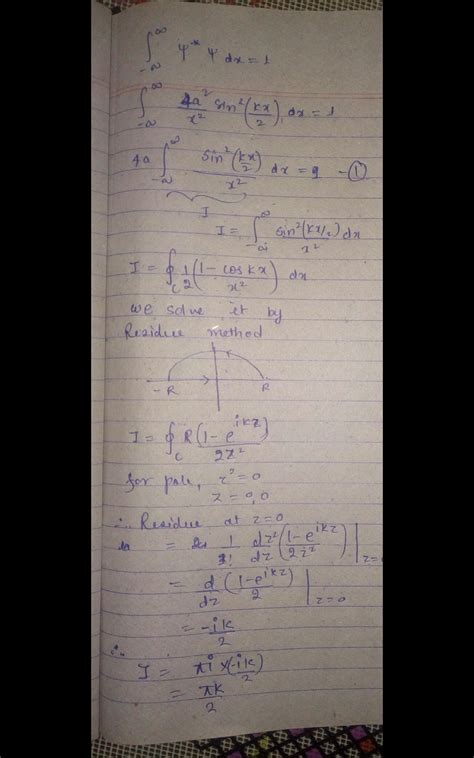 ∫_{-∞}^{∞} ψ* ψ dx = 1
∫_{-∞}^{∞} 4a²/x² sin²(kx/2) dx = 1
4a ∫_{-∞}^{∞} sin²(kx/2)/x² dx = 1 - ①
I
I = ∫_{-∞}^{∞} sin²(kx/2)/x² dx
I = ∮_C 1/2 (1 - cos kx)/x² dx
we solve it by
Residue method
-R R
I = ∮_C R (1 - e^{ikz})/2z²
for pole, z² = 0
z = 0,0
∴ Residue at z=0
= 1/1! d/dz z² (1 - e^{ikz}/2z²) |_{z=0}
= d/dz (1 - e^{ikz}/2) |_{z=0}
= -ik/2
∴ I = πi × (-ik/2)
= πk/2